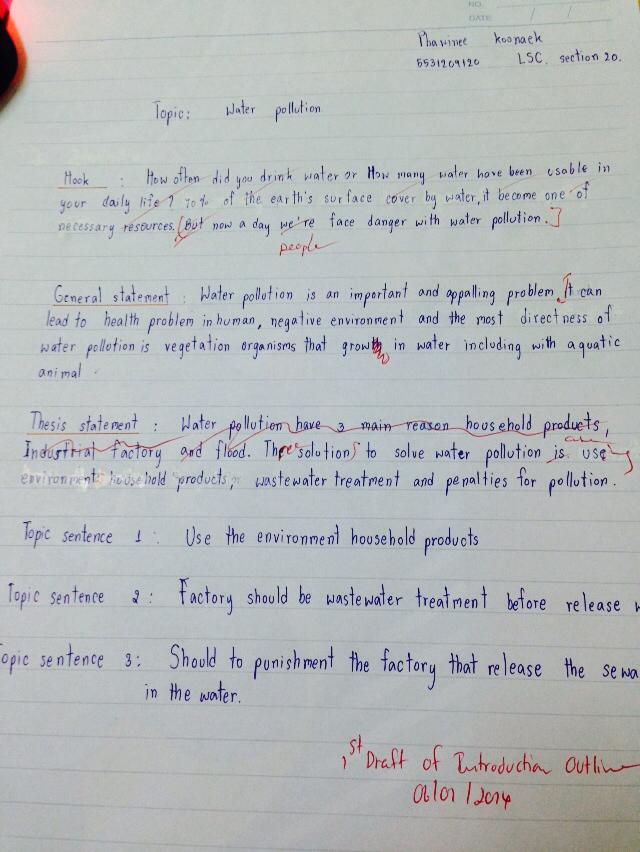 NO.
DATE / /
Phavinee Koonaek
5531209120 LSC. section 20.
Topic: Water pollution
Hook : How often did you drink water or How many water have been usable in
your daily life ? 70% of the earth's surface cover by water, it become one of
necessary resources. [But now a day we're face danger with water pollution.]
people
General statement : Water pollution is an important and appalling problem. It can
lead to health problem in human, negative environment and the most directness of
water pollution is vegetation organisms that grow in water including with aquatic
animal.
Thesis statement : Water pollution have 3 main reason household products,
Industrial factory and flood. Three solutions to solve water pollution is using
environment household products, wastewater treatment and penalties for pollution.
Topic sentence 1 : Use the environment household products
Topic sentence 2 : Factory should be wastewater treatment before release w
opic sentence 3: Should to punishment the factory that release the sewa
in the water.
1st Draft of Introduction Outline
06/01/2014